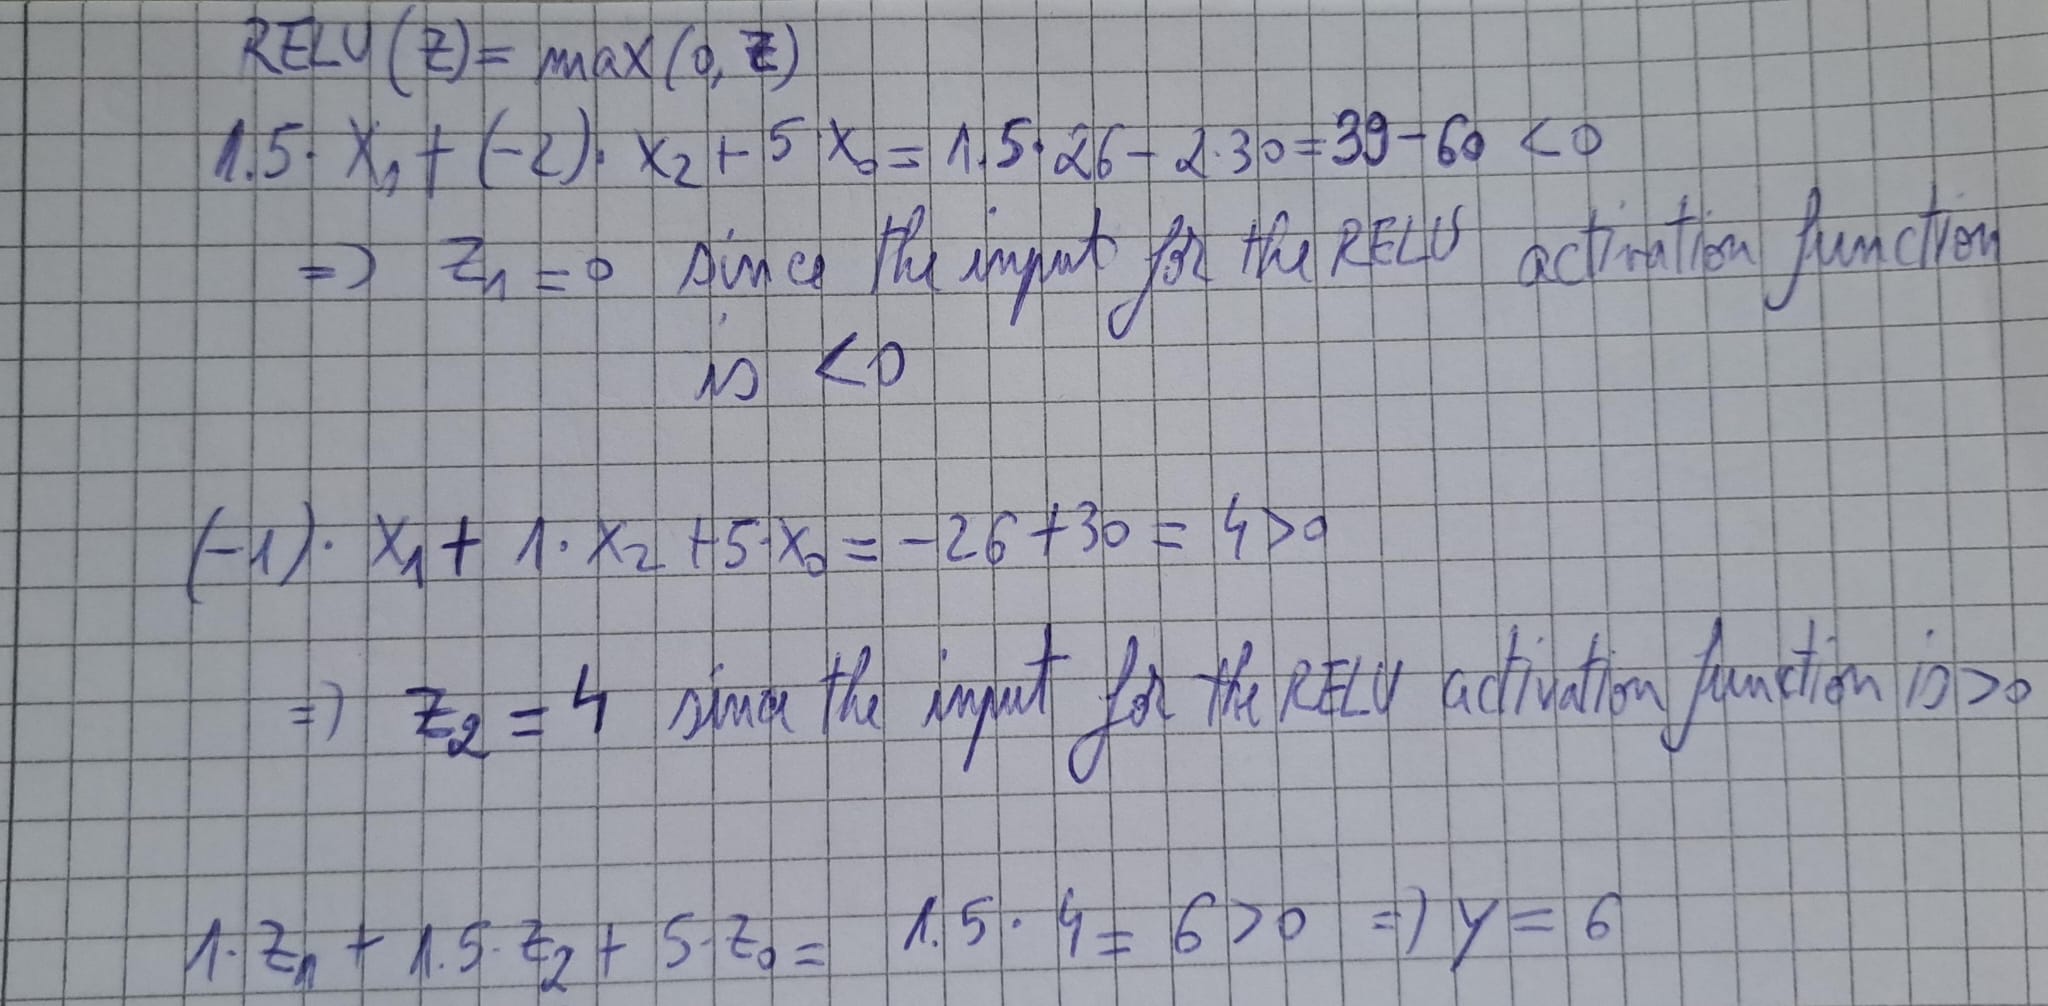 RELU(z) = max(0, z)
1.5 · x₁ + (-2) · x₂ + 5 x₀ = 1.5 · 26 - 2 · 30 = 39 - 60 < 0
=> z₁ = 0 since the input for the RELU activation function
is < 0
(-1) · x₁ + 1 · x₂ + 5 · x₀ = -26 + 30 = 4 > 0
=> z₂ = 4 since the input for the RELU activation function is > 0
1 · z₁ + 1.5 · z₂ + 5 · z₀ = 1.5 · 4 = 6 > 0 => y = 6